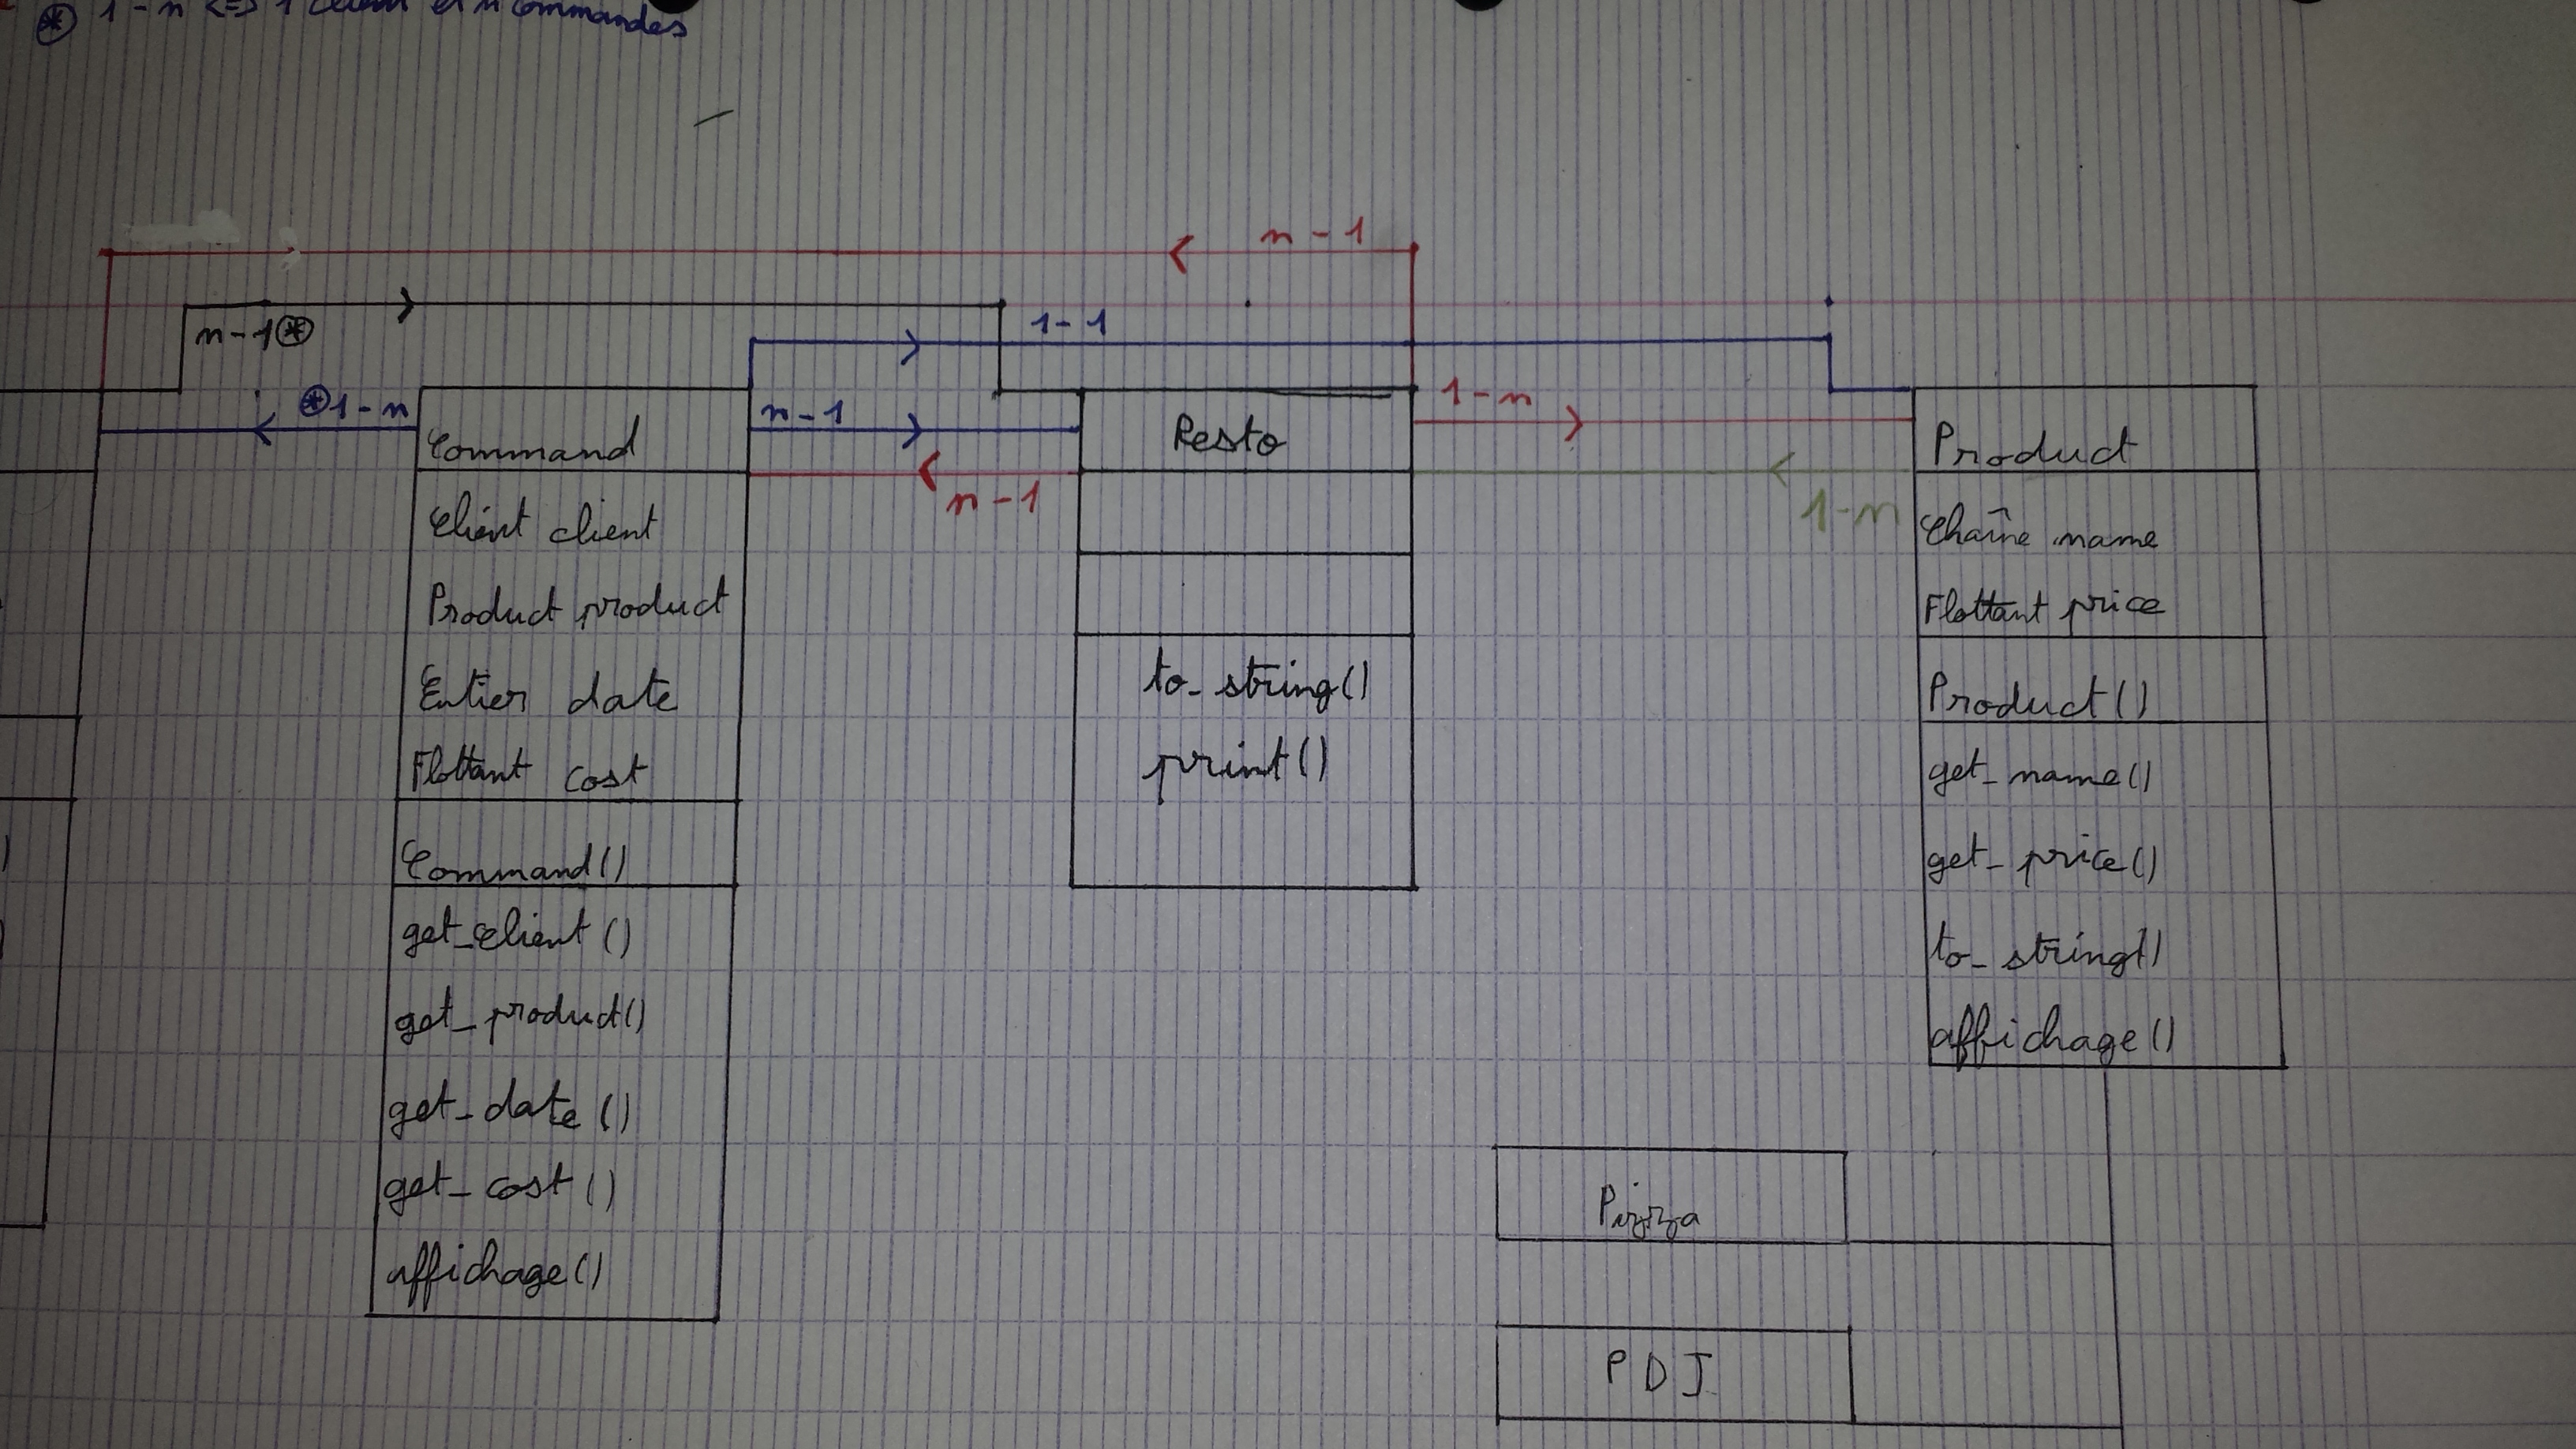 ⊛ 1-n <=> 1 client et n commandes
n-1
n-1⊛
1-1
⊛1-n
n-1
1-n
n-1
1-n
Command
Client client
Product product
Entier date
Flottant cost
Command()
get_client()
get_product()
get_date()
get_cost()
affichage()
Resto
to_string()
print()
Product
Chaîne name
Flottant price
Product()
get_name()
get_price()
to_string()
affichage()
Pizza
PDJ